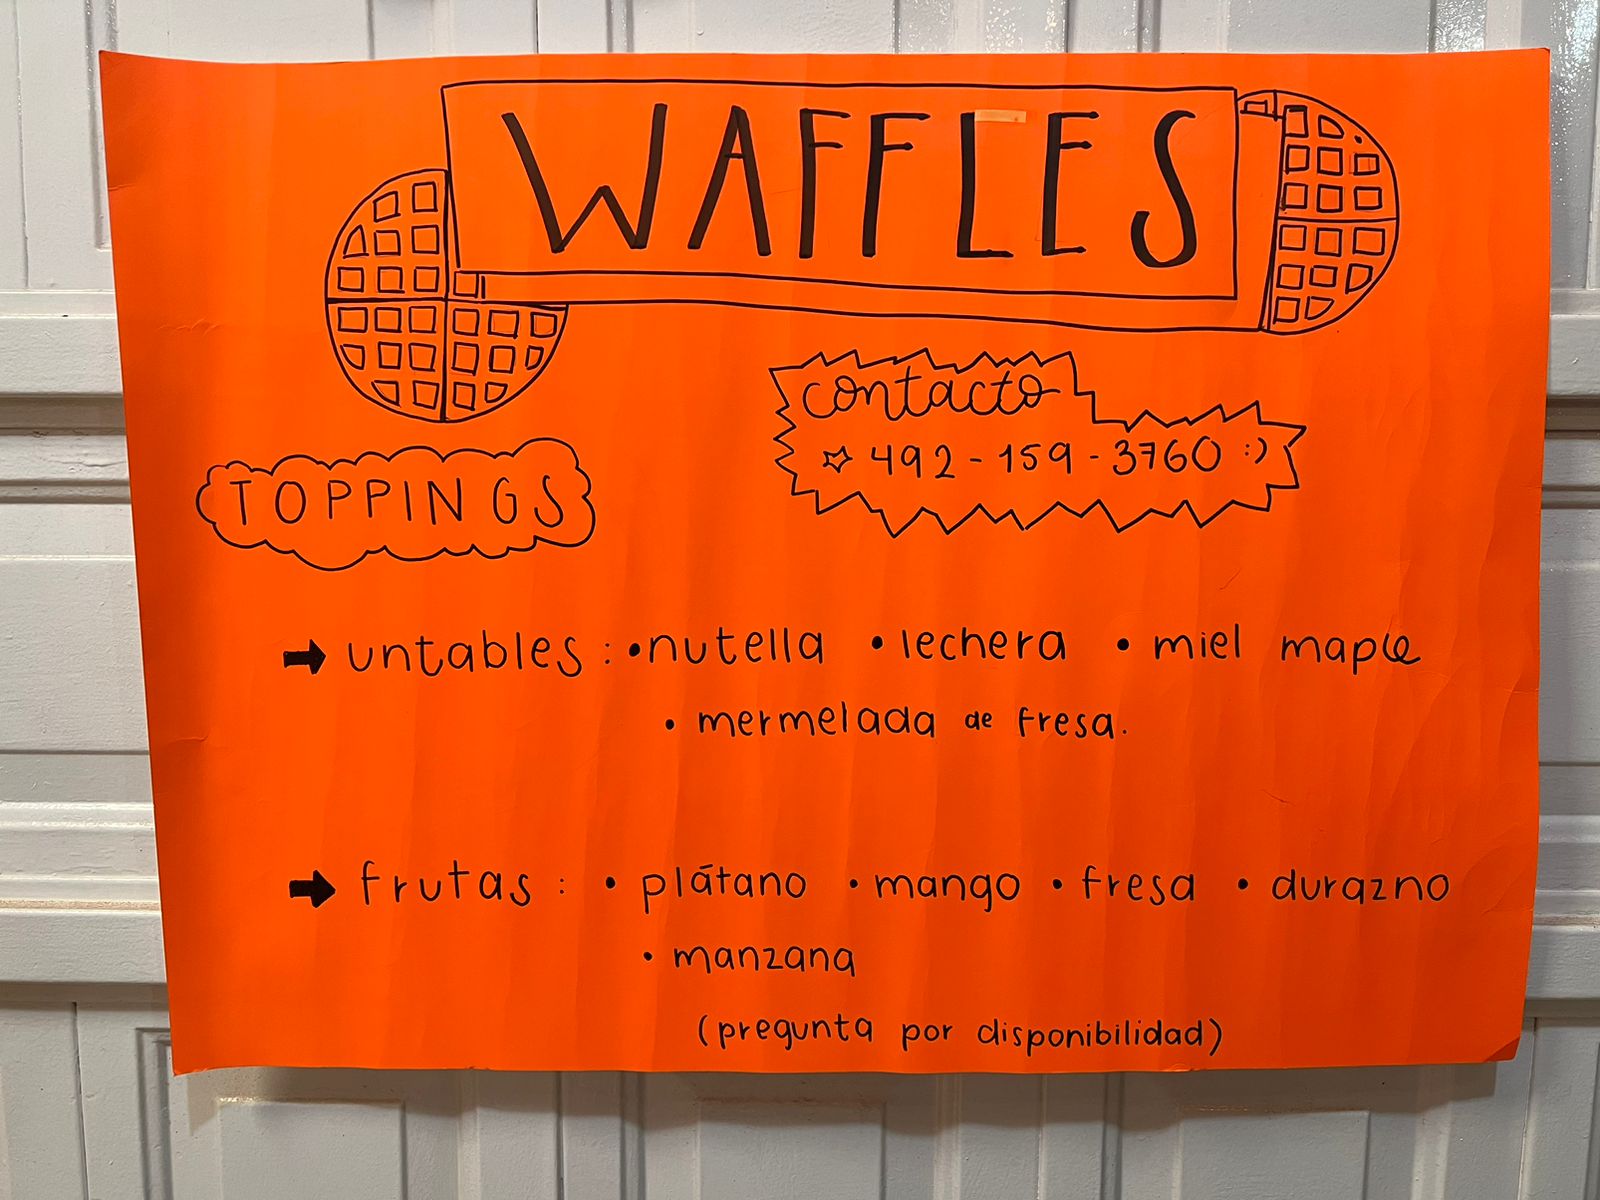 WAFFLES
contacto
492-159-3760 :)
TOPPINGS
➡ untables: • nutella • lechera • miel maple
• mermelada de fresa.
➡ frutas: • plátano • mango • fresa • durazno
• manzana
(pregunta por disponibilidad)